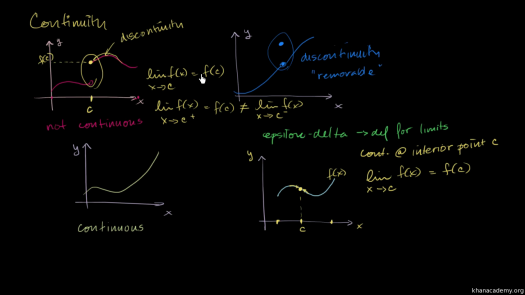 Continuity
y
discontinuity
f(c)
x
c
not continuous
lim f(x) = f(c)
x→c
lim f(x) = f(c) ≠ lim f(x)
x→c⁺ x→c⁻
y
discontinuity
"removable"
x
epsilon-delta → def for limits
cont. @ interior point c
lim f(x) = f(c)
x→c
y
x
continuous
y
f(x)
c
x
khanacademy.org